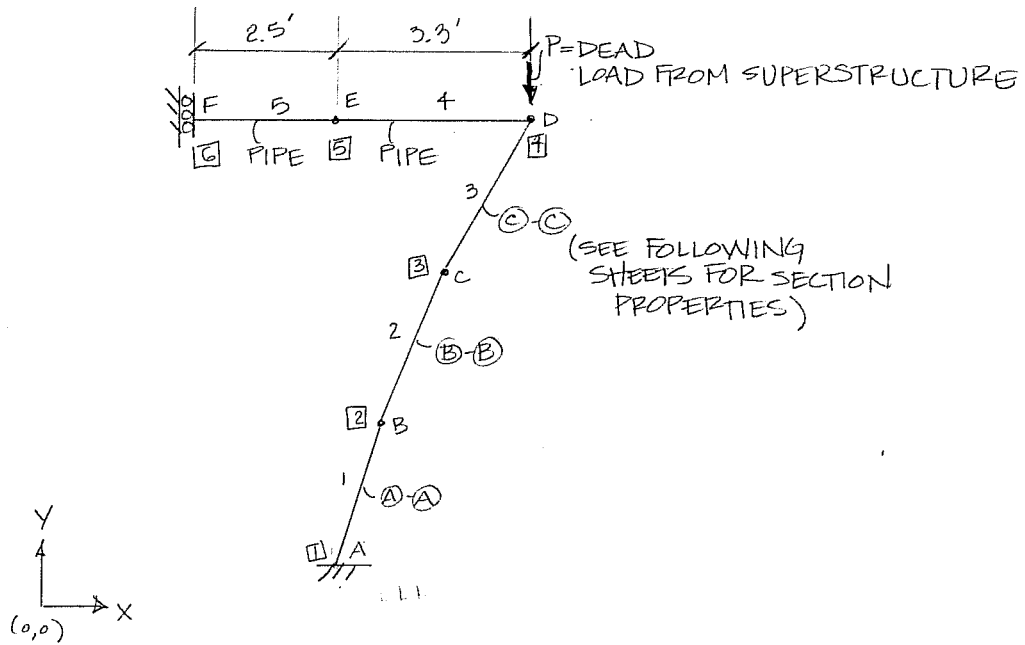 2.5' 3.3'
P=DEAD
LOAD FROM SUPERSTRUCTURE
F 5 E 4 D
6 PIPE 5 PIPE 4
3
C-C
(SEE FOLLOWING
SHEETS FOR SECTION
PROPERTIES)
3 C
2
B-B
2 B
1
A-A
1 A
Y
X
(0,0)